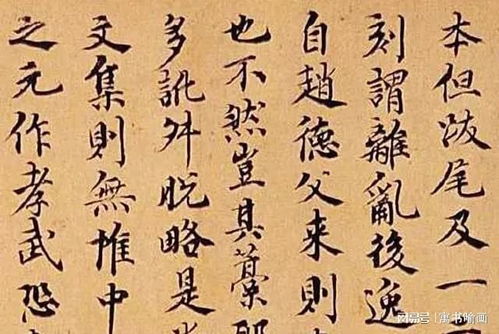 本但跋尾及一
刻謂離亂後逸
自趙德父来則
也不然豈其藁
多訛舛脱略是
文集則無惟中
之元作孝武恐
搜狐号@寓书喻画